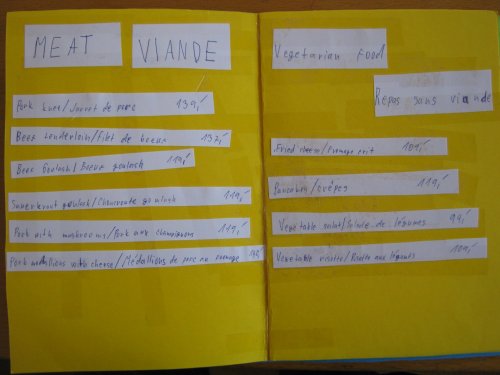 MEAT VIANDE
Pork knee/Jarret de porc 139,-
Beef tenderloin/Filet de boeuf 132,-
Beef Goulash/Boeuf goulash 119,-
Sauerkraut goulash/Choucroute goulash 119,-
Pork with mushrooms/Pork aux champignons 119,-
Pork medallions with cheese/Médallions de porc au fromage
Vegetarian Food
Repas sans viande
Fried cheese/Fromage frit 109,-
Pancakes/Crêpes 119,-
Vegetable salad/Salade de légumes 99,-
Vegetable risotto/Risotto aux légumes 109,-